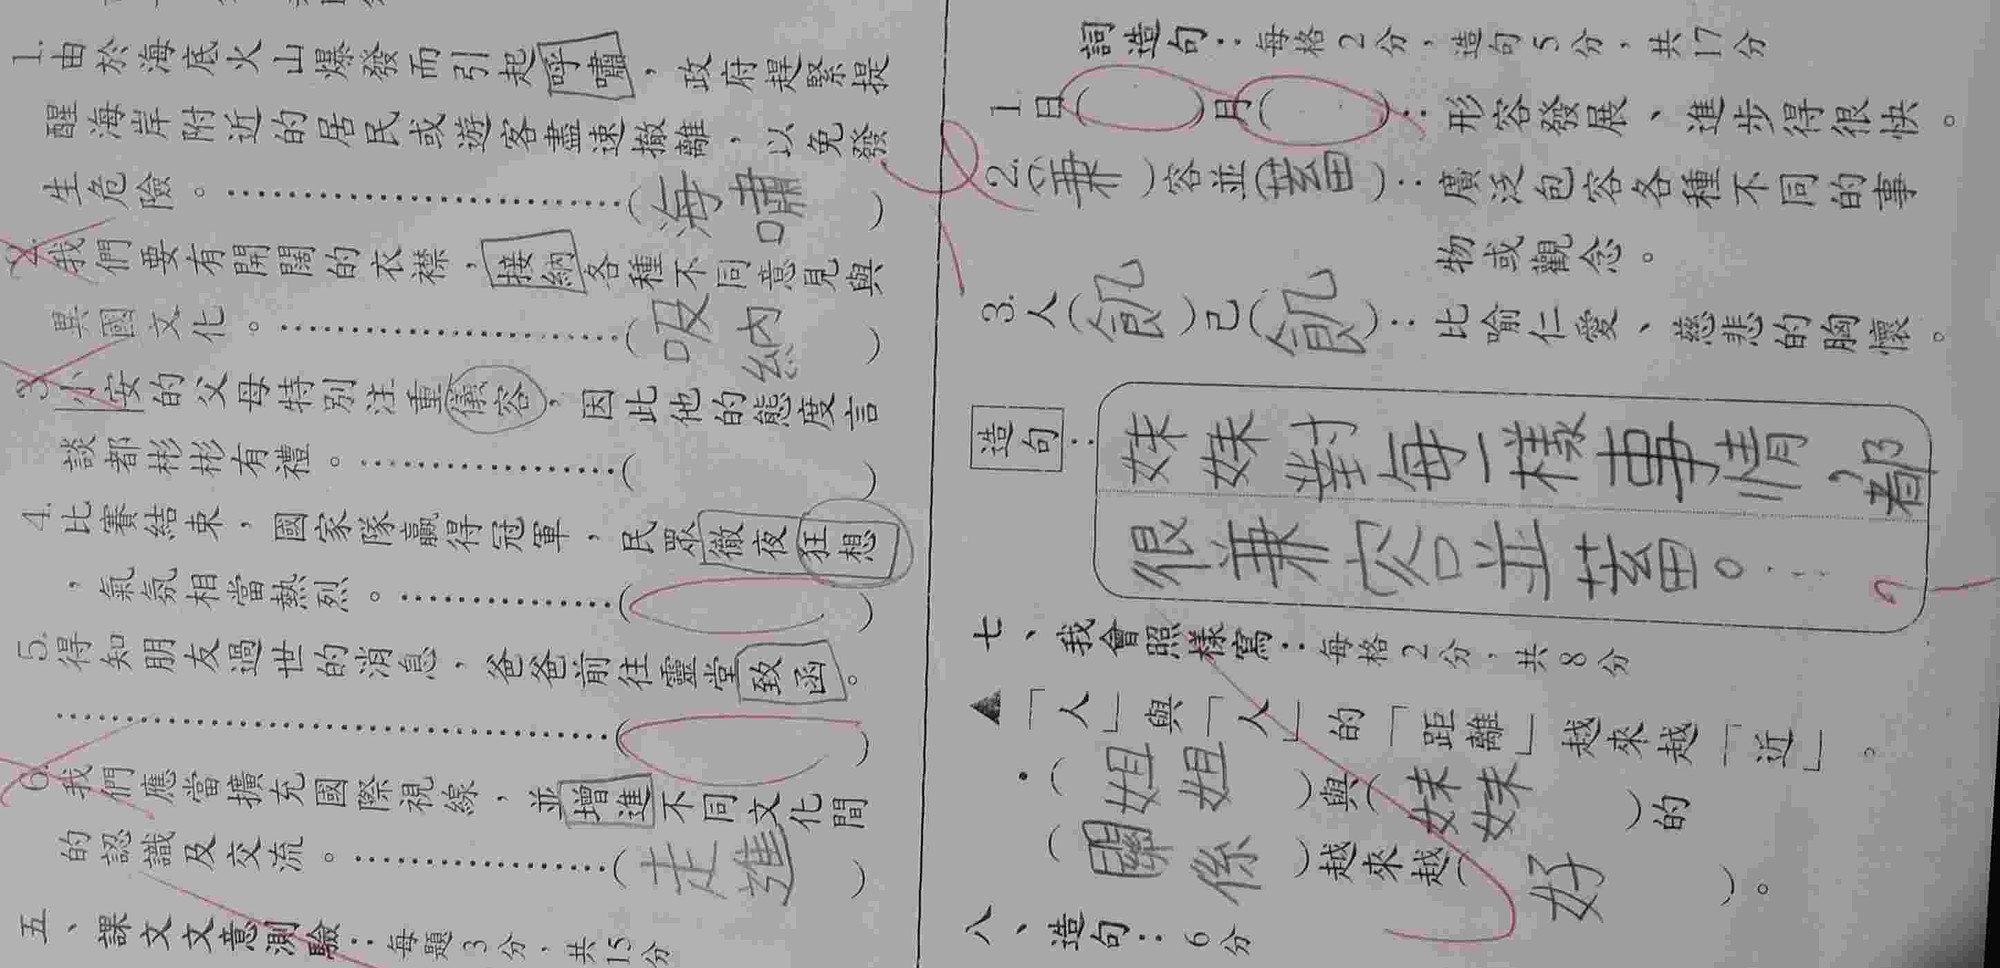 1.由於海底火山爆發而引起呼嘯，政府趕緊提
醒海岸附近的居民或遊客盡速撤離，以免發
生危險。……………………（海嘯）
2.我們要有開闊的衣襟，接納各種不同意見與
異國文化。……………………（吸納）
3.小安的父母特別注重儀容，因此他的態度言
談都彬彬有禮。……………………（　）
4.比賽結束，國家隊贏得冠軍，民眾徹夜狂想
，氣氛相當熱烈。……………………（　）
5.得知朋友過世的消息，爸爸前往靈堂致函。
……………………（　）
6.我們應當擴充國際視線，並增進不同文化間
的認識及交流。……………………（走進）
五、課文文意測驗：每題3分，共15分
詞造句：每格2分，造句5分，共17分
1.日（　）月（　）：形容發展、進步得很快。
2.（兼）容並（蓄）：廣泛包容各種不同的事
物或觀念。
3.人（飢）己（飢）：比喻仁愛、慈悲的胸懷。
造句：
妹妹對每一樣事情，都
很兼容並蓄。
七、我會照樣寫：每格2分，共8分
▲「人」與「人」的「距離」越來越「近」。
•（姐姐）與（妹妹）的
（關係）越來越（好）。
八、造句：6分